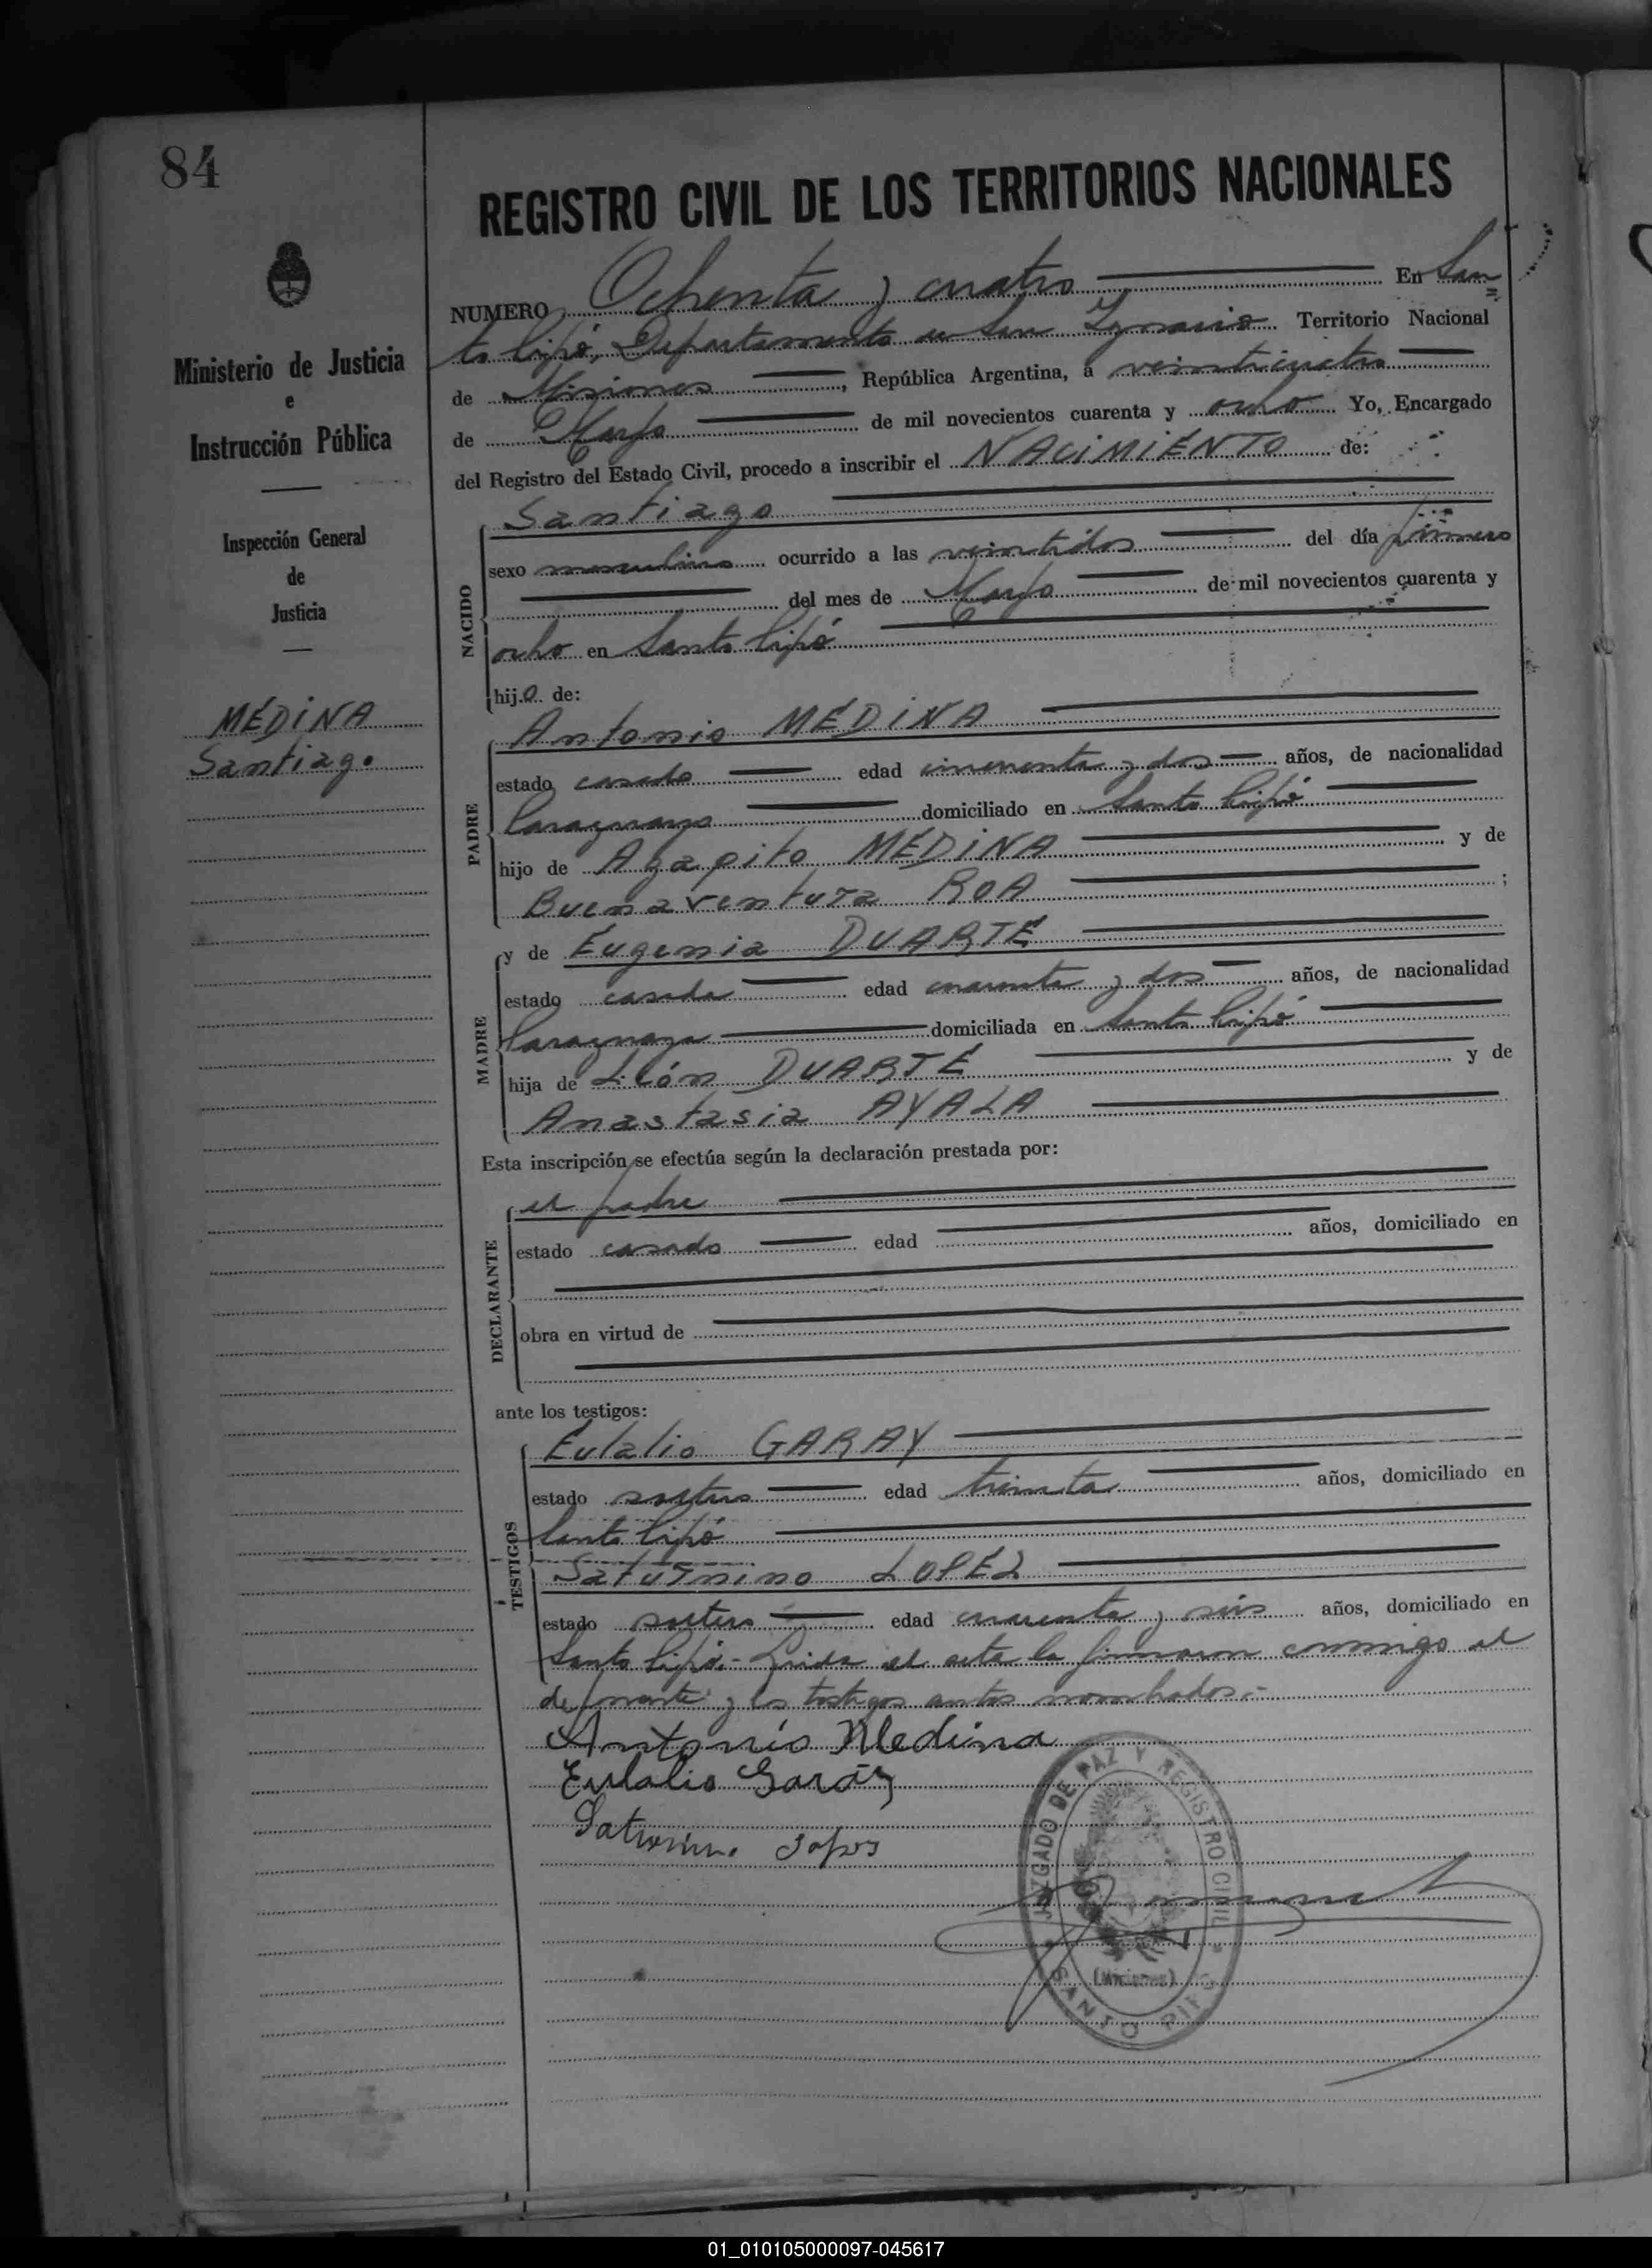 84
REGISTRO CIVIL DE LOS TERRITORIOS NACIONALES
NUMERO Ochenta y cuatro En San
to Pipó, Departamento de San Ignacio Territorio Nacional
de Misiones, República Argentina, a veinticuatro
de Marzo de mil novecientos cuarenta y ocho Yo, Encargado
del Registro del Estado Civil, procedo a inscribir el NACIMIENTO de:
Ministerio de Justicia
e
Instrucción Pública
Inspección General
de
Justicia
MEDINA
Santiago
NACIDO
Santiago
sexo masculino ocurrido a las veintidos del día primero
del mes de Marzo de mil novecientos cuarenta y
ocho en Santo Pipó
hijo de:
PADRE
Antonio MEDINA
estado casado edad cincuenta y dos años, de nacionalidad
Paraguayo domiciliado en Santo Pipó
hijo de Agapito MEDINA y de
Buenaventura ROA ;
MADRE
y de Eugenia DUARTE
estado casada edad cuarenta y dos años, de nacionalidad
Paraguaya domiciliada en Santo Pipó
hija de León DUARTE y de
Anastasia AYALA
Esta inscripción se efectúa según la declaración prestada por:
DECLARANTE
el padre
estado casado edad años, domiciliado en
obra en virtud de
ante los testigos:
TESTIGOS
Eulalio GARAY
estado soltero edad treinta años, domiciliado en
Santo Pipó
Saturnino LOPEZ
estado soltero edad cuarenta y seis años, domiciliado en
Santo Pipó.- Leída el acta la firmaron conmigo el
declarante y los testigos antes nombrados.-
Antonio Medina
Eulalio Garay
Saturnino Lopez
JUZGADO DE PAZ Y REGISTRO CIVIL
(Misiones)
SANTO PIPO
01_010105000097-045617